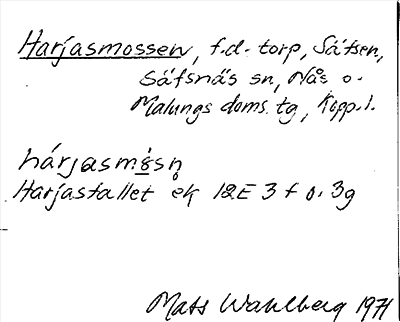 Harjasmossen, f.d. torp, Säfsen,
Säfsnäs sn, Nås o.
Malungs doms. tg, Kopp. l.
hárjasmåsn̥
Harjastallet ek 12E 3 f o. 3g
Mats Wahlberg 1971